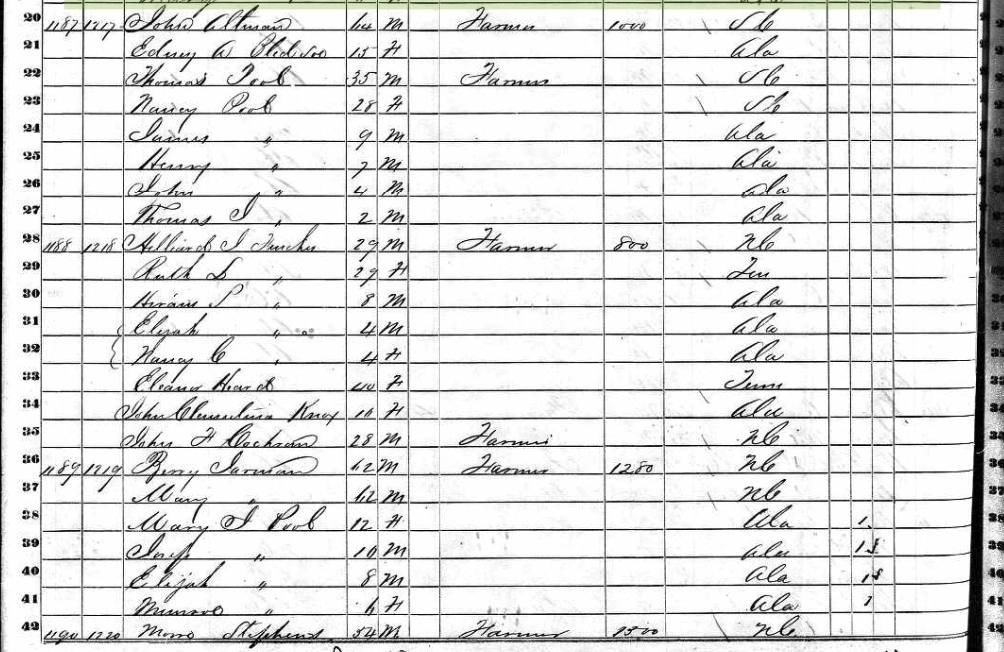 20 1187 1217 John Altman 64 M Farmer 1000 SC
21 Edney A 15 F Ala
22 Thomas Pool 35 M Farmer SC
23 Nancy Pool 28 F SC
24 James " 9 M Ala
25 Henry " 7 M Ala
26 John " 4 M Ala
27 Thomas J " 2 M Ala
28 1188 1218 Hilliard J 29 M Farmer 800 NC
29 Ruth L " 29 F Ten
30 Hiram P " 8 M Ala
31 Elijah " 4 M Ala
32 Nancy C " 4 F Ala
33 Eleanor Heard 40 F Tenn
34 John Clementina Knox 10 F Ala
35 John H Cochran 28 M Farmer NC
36 1189 1219 Berry Jarman 62 M Farmer 1280 NC
37 Mary " 62 M NC
38 Mary J Pool 12 F Ala 1
39 " 10 M Ala 1
40 Elijah " 8 M Ala 1
41 Munroe " 6 F Ala 1
42 1190 1220 Stephens 54 M Farmer 1500 NC